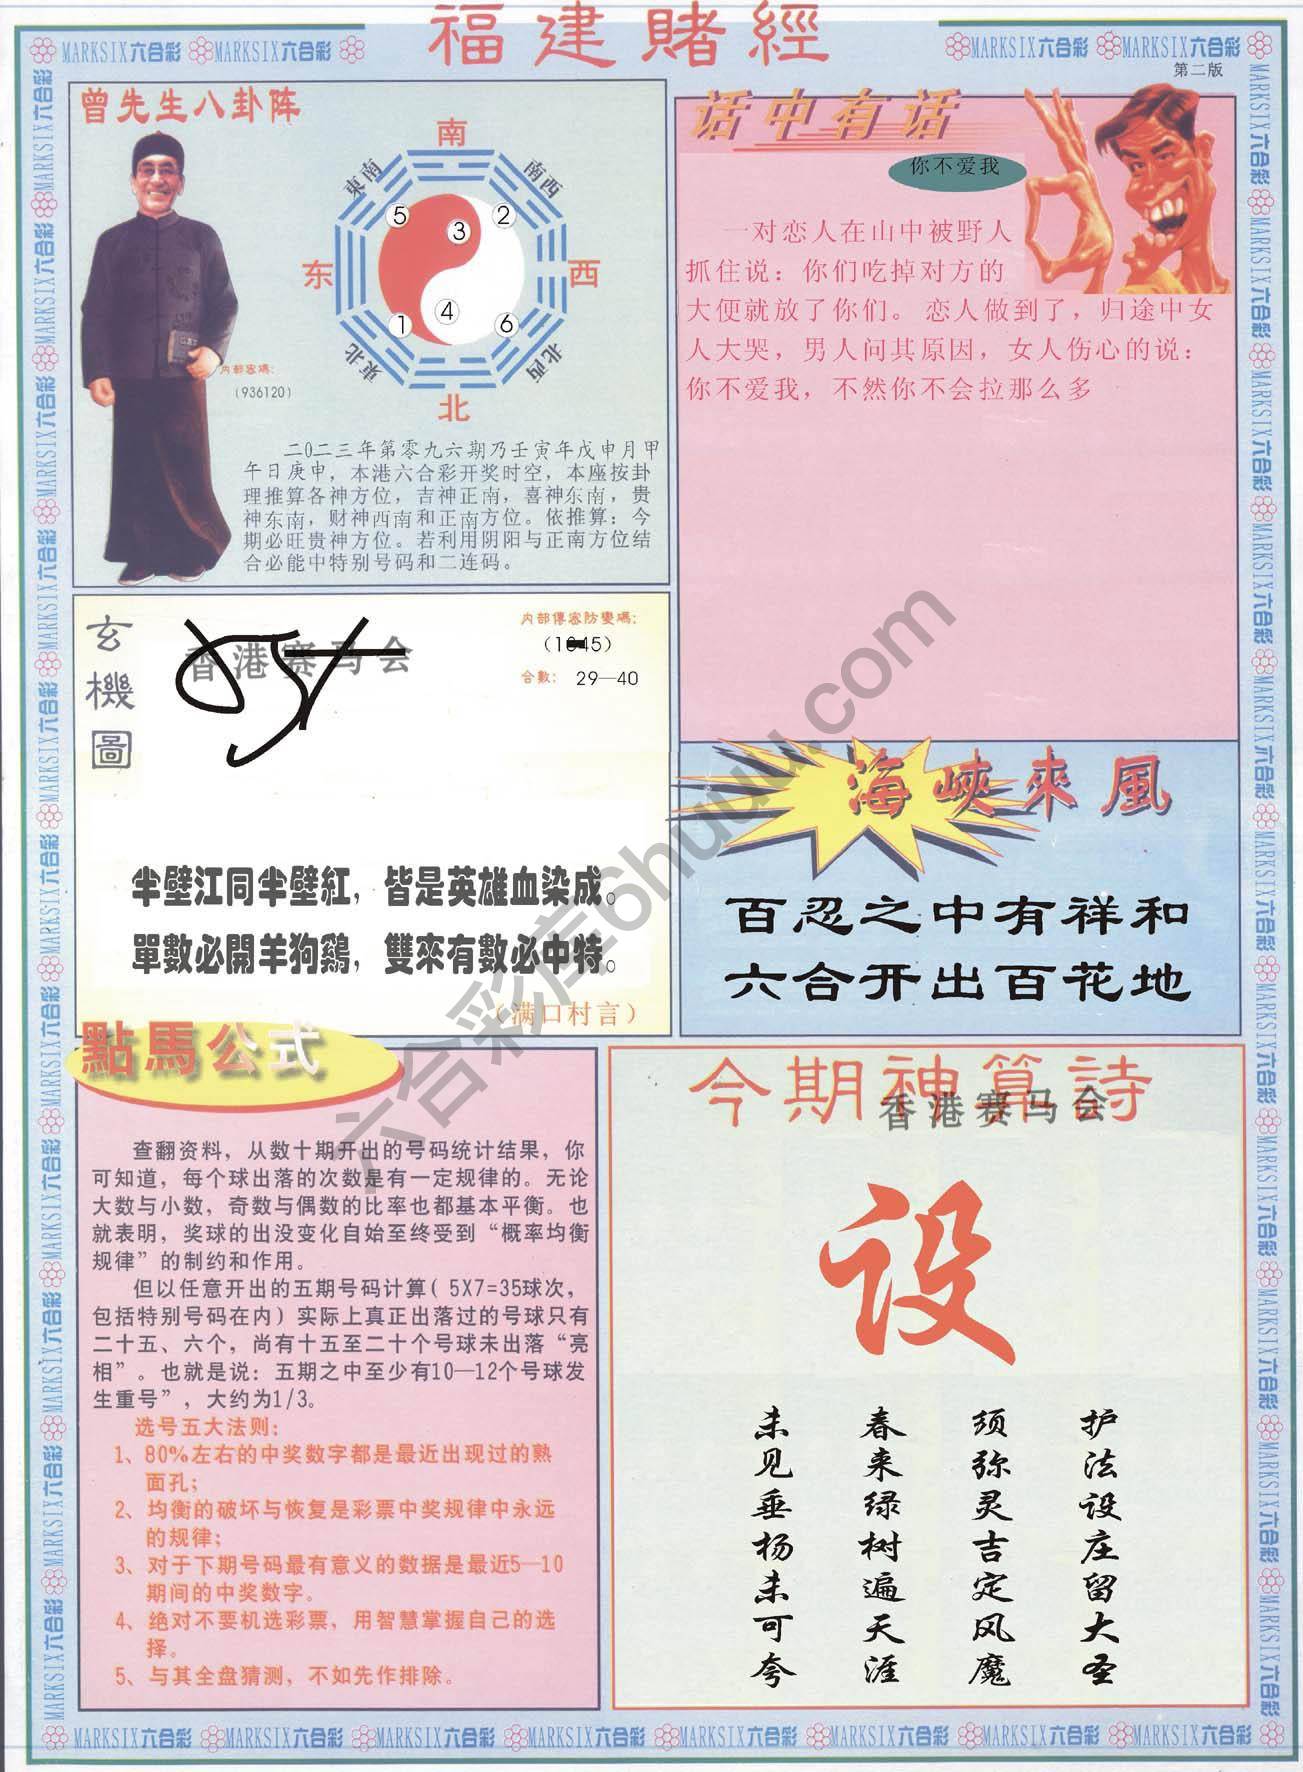 福建賭經
MARKSIX六合彩 MARKSIX六合彩
MARKSIX六合彩 MARKSIX六合彩
第二版
曾先生八卦阵
南
東南
南西
5
3
2
东
西
4
1
6
東北
北西
北
内部密碼:
(936120)
二0二三年第零九六期乃壬寅年戊申月甲
午日庚申，本港六合彩开奖时空，本座按卦
理推算各神方位，吉神正南，喜神东南，贵
神东南，财神西南和正南方位。依推算：今
期必旺贵神方位。若利用阴阳与正南方位结
合必能中特别号码和二连码。
话中有话
你不爱我
一对恋人在山中被野人
抓住说：你们吃掉对方的
大便就放了你们。恋人做到了，归途中女
人大哭，男人问其原因，女人伤心的说：
你不爱我，不然你不会拉那么多
玄機圖
香港赛马会
内部傳密防變碼:
合數: 29—40
半壁江同半壁紅，皆是英雄血染成。
單數必開羊狗鷄，雙來有數必中特。
（满口村言）
海峽來風
百忍之中有祥和
六合开出百花地
點馬公式
查翻资料，从数十期开出的号码统计结果，你
可知道，每个球出落的次数是有一定规律的。无论
大数与小数，奇数与偶数的比率也都基本平衡。也
就表明，奖球的出没变化自始至终受到“概率均衡
规律”的制约和作用。
但以任意开出的五期号码计算( 5X7=35球次，
包括特别号码在内) 实际上真正出落过的号球只有
二十五、六个，尚有十五至二十个号球未出落“亮
相”。也就是说：五期之中至少有10—12个号球发
生重号”，大约为1/3。
选号五大法则:
1、80%左右的中奖数字都是最近出现过的熟
面孔;
2、均衡的破坏与恢复是彩票中奖规律中永远
的规律;
3、对于下期号码最有意义的数据是最近5—10
期间的中奖数字。
4、绝对不要机选彩票，用智慧掌握自己的选
择。
5、与其全盘猜测，不如先作排除。
今期神算詩
香港赛马会
设
护法设庄留大圣
须弥灵吉定风魔
春来绿树遍天涯
未见垂杨未可夸
六合彩库6huuu.com
MARKSIX六合彩 MARKSIX六合彩 MARKSIX六合彩 MARKSIX六合彩 MARKSIX六合彩 MARKSIX六合彩 MARKSIX六合彩 MARKSIX六合彩